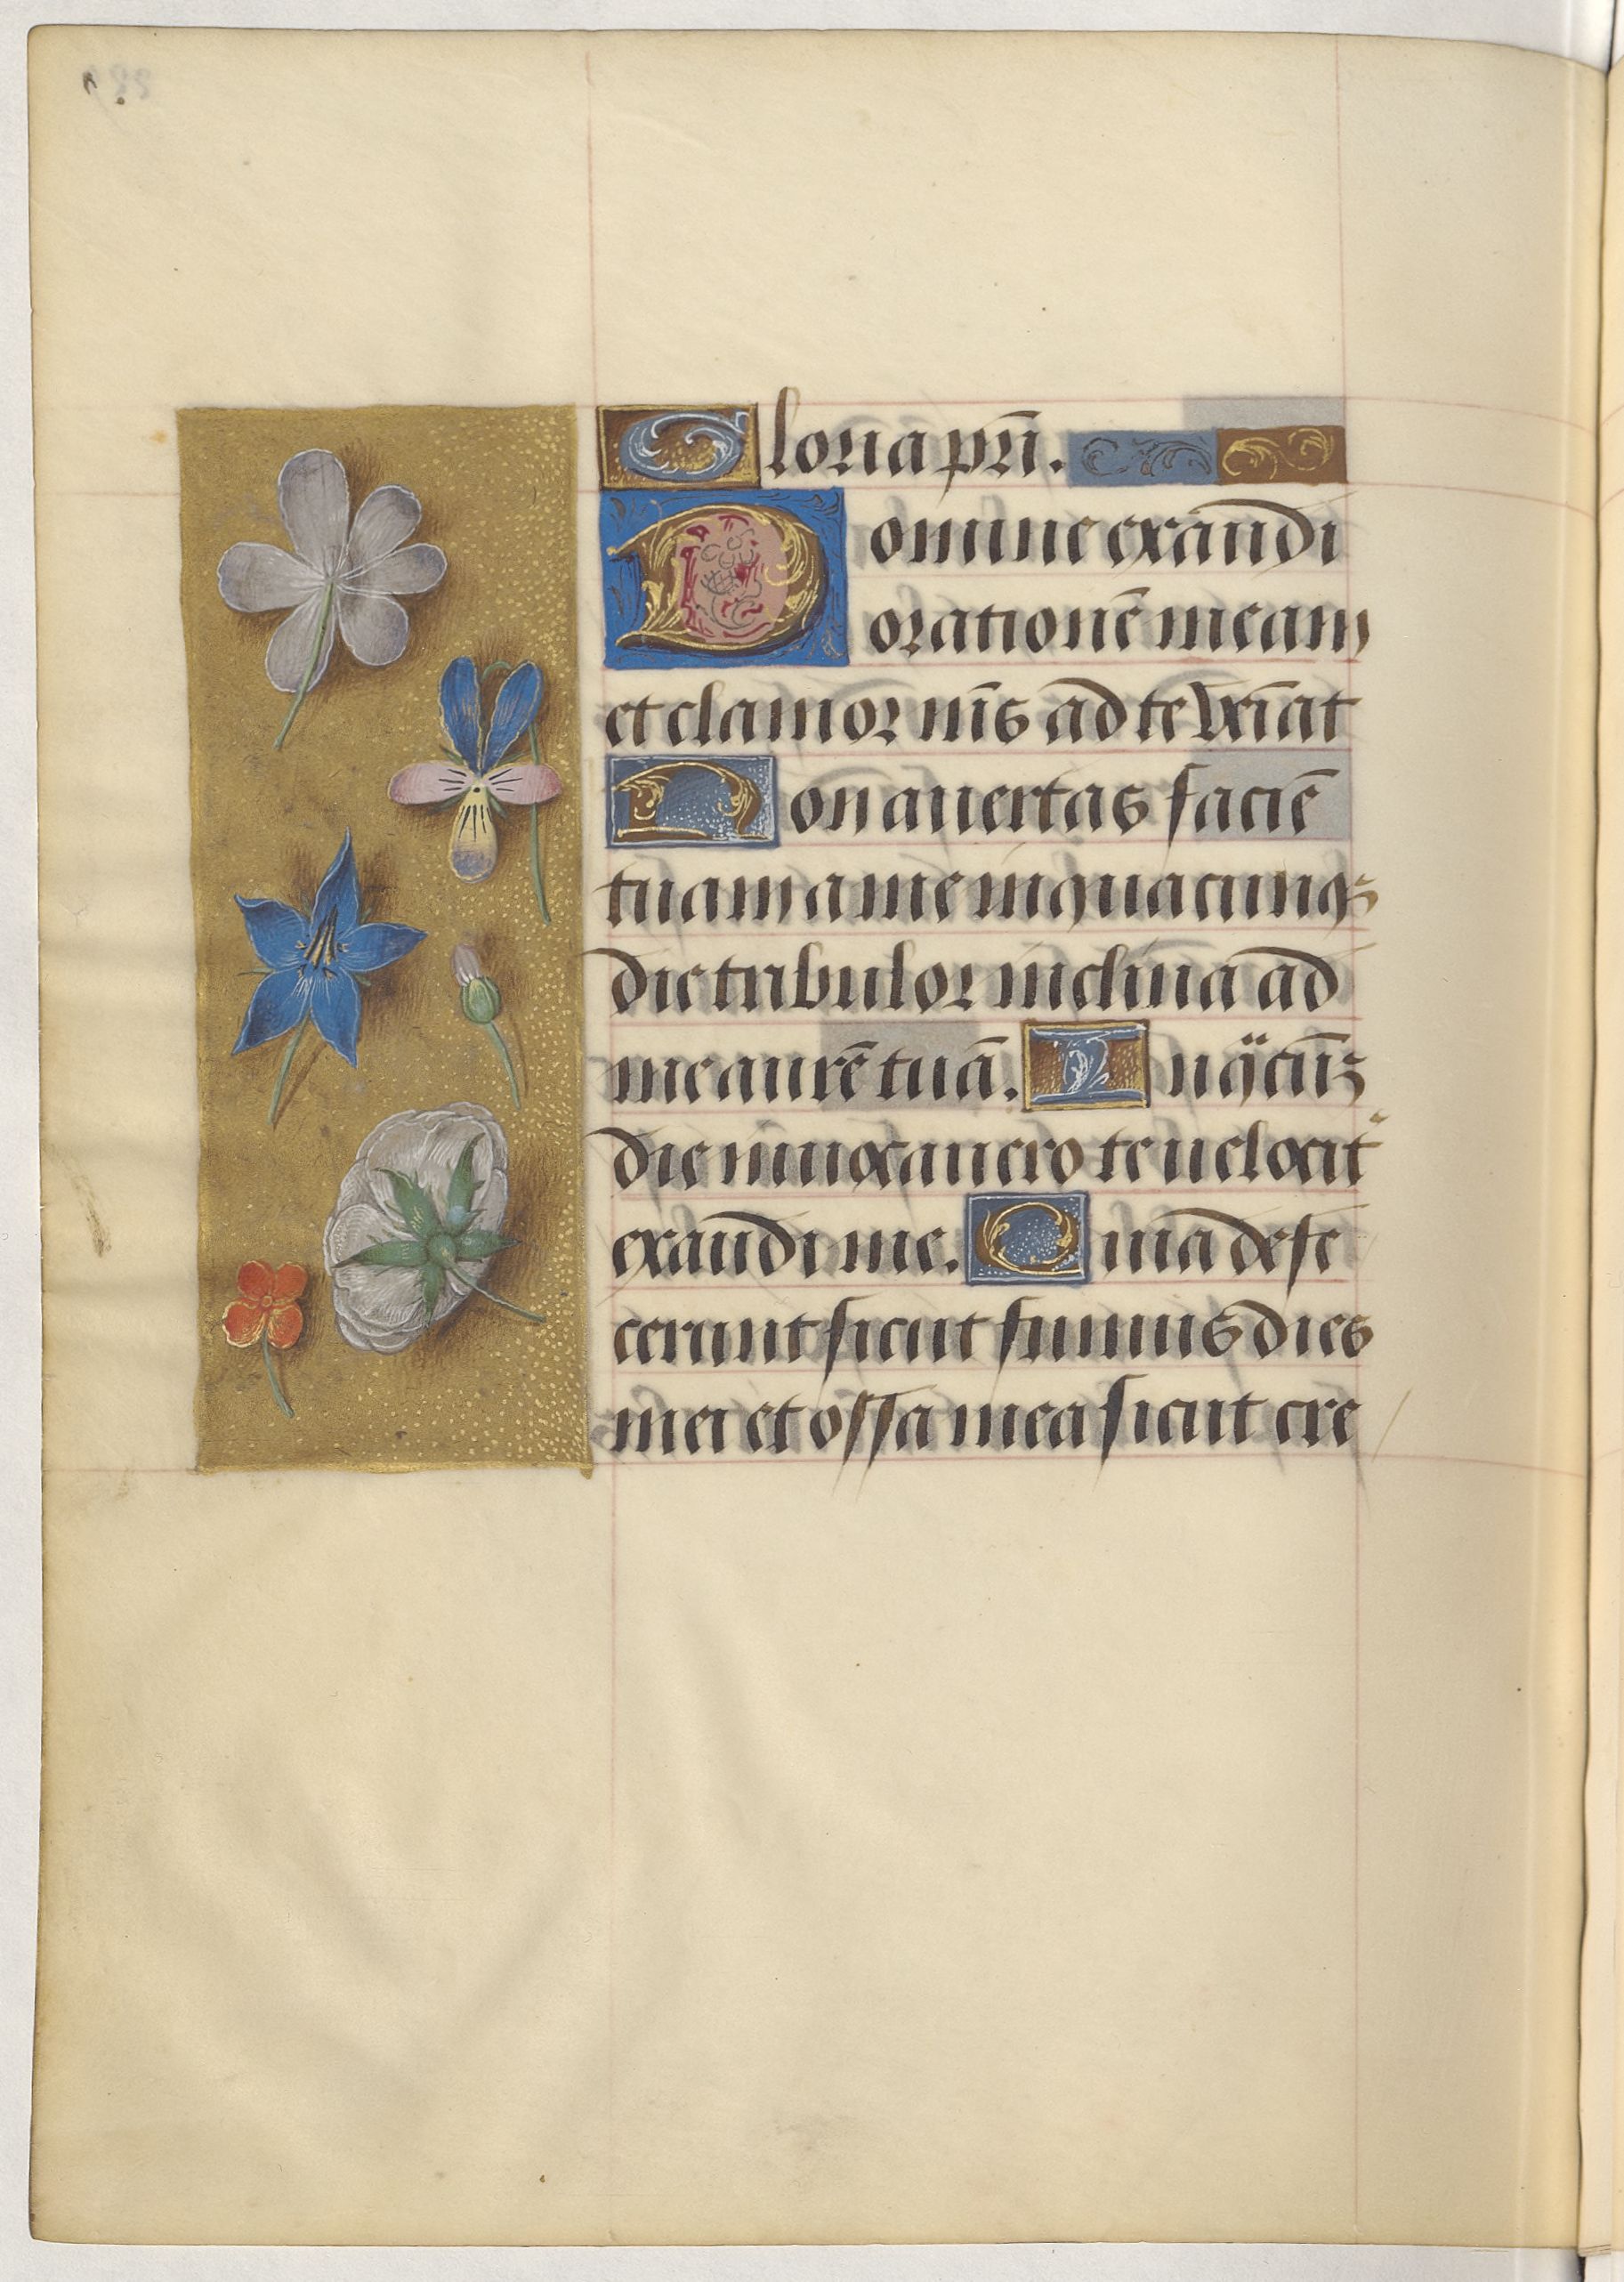 Gloria pr̄i.
Domine exaudi
orationē meam
et clamor mēs ad te veīat
Non auertas faciē
tuam a me in quacunqȝ
die tribulor inclina ad
me aurē tuā. In q̈cūȝ
die inuocauero te uelocit̄
exaudi me. Quia defe
cerunt sicut fumus dies
mei et ossa mea sicut cre